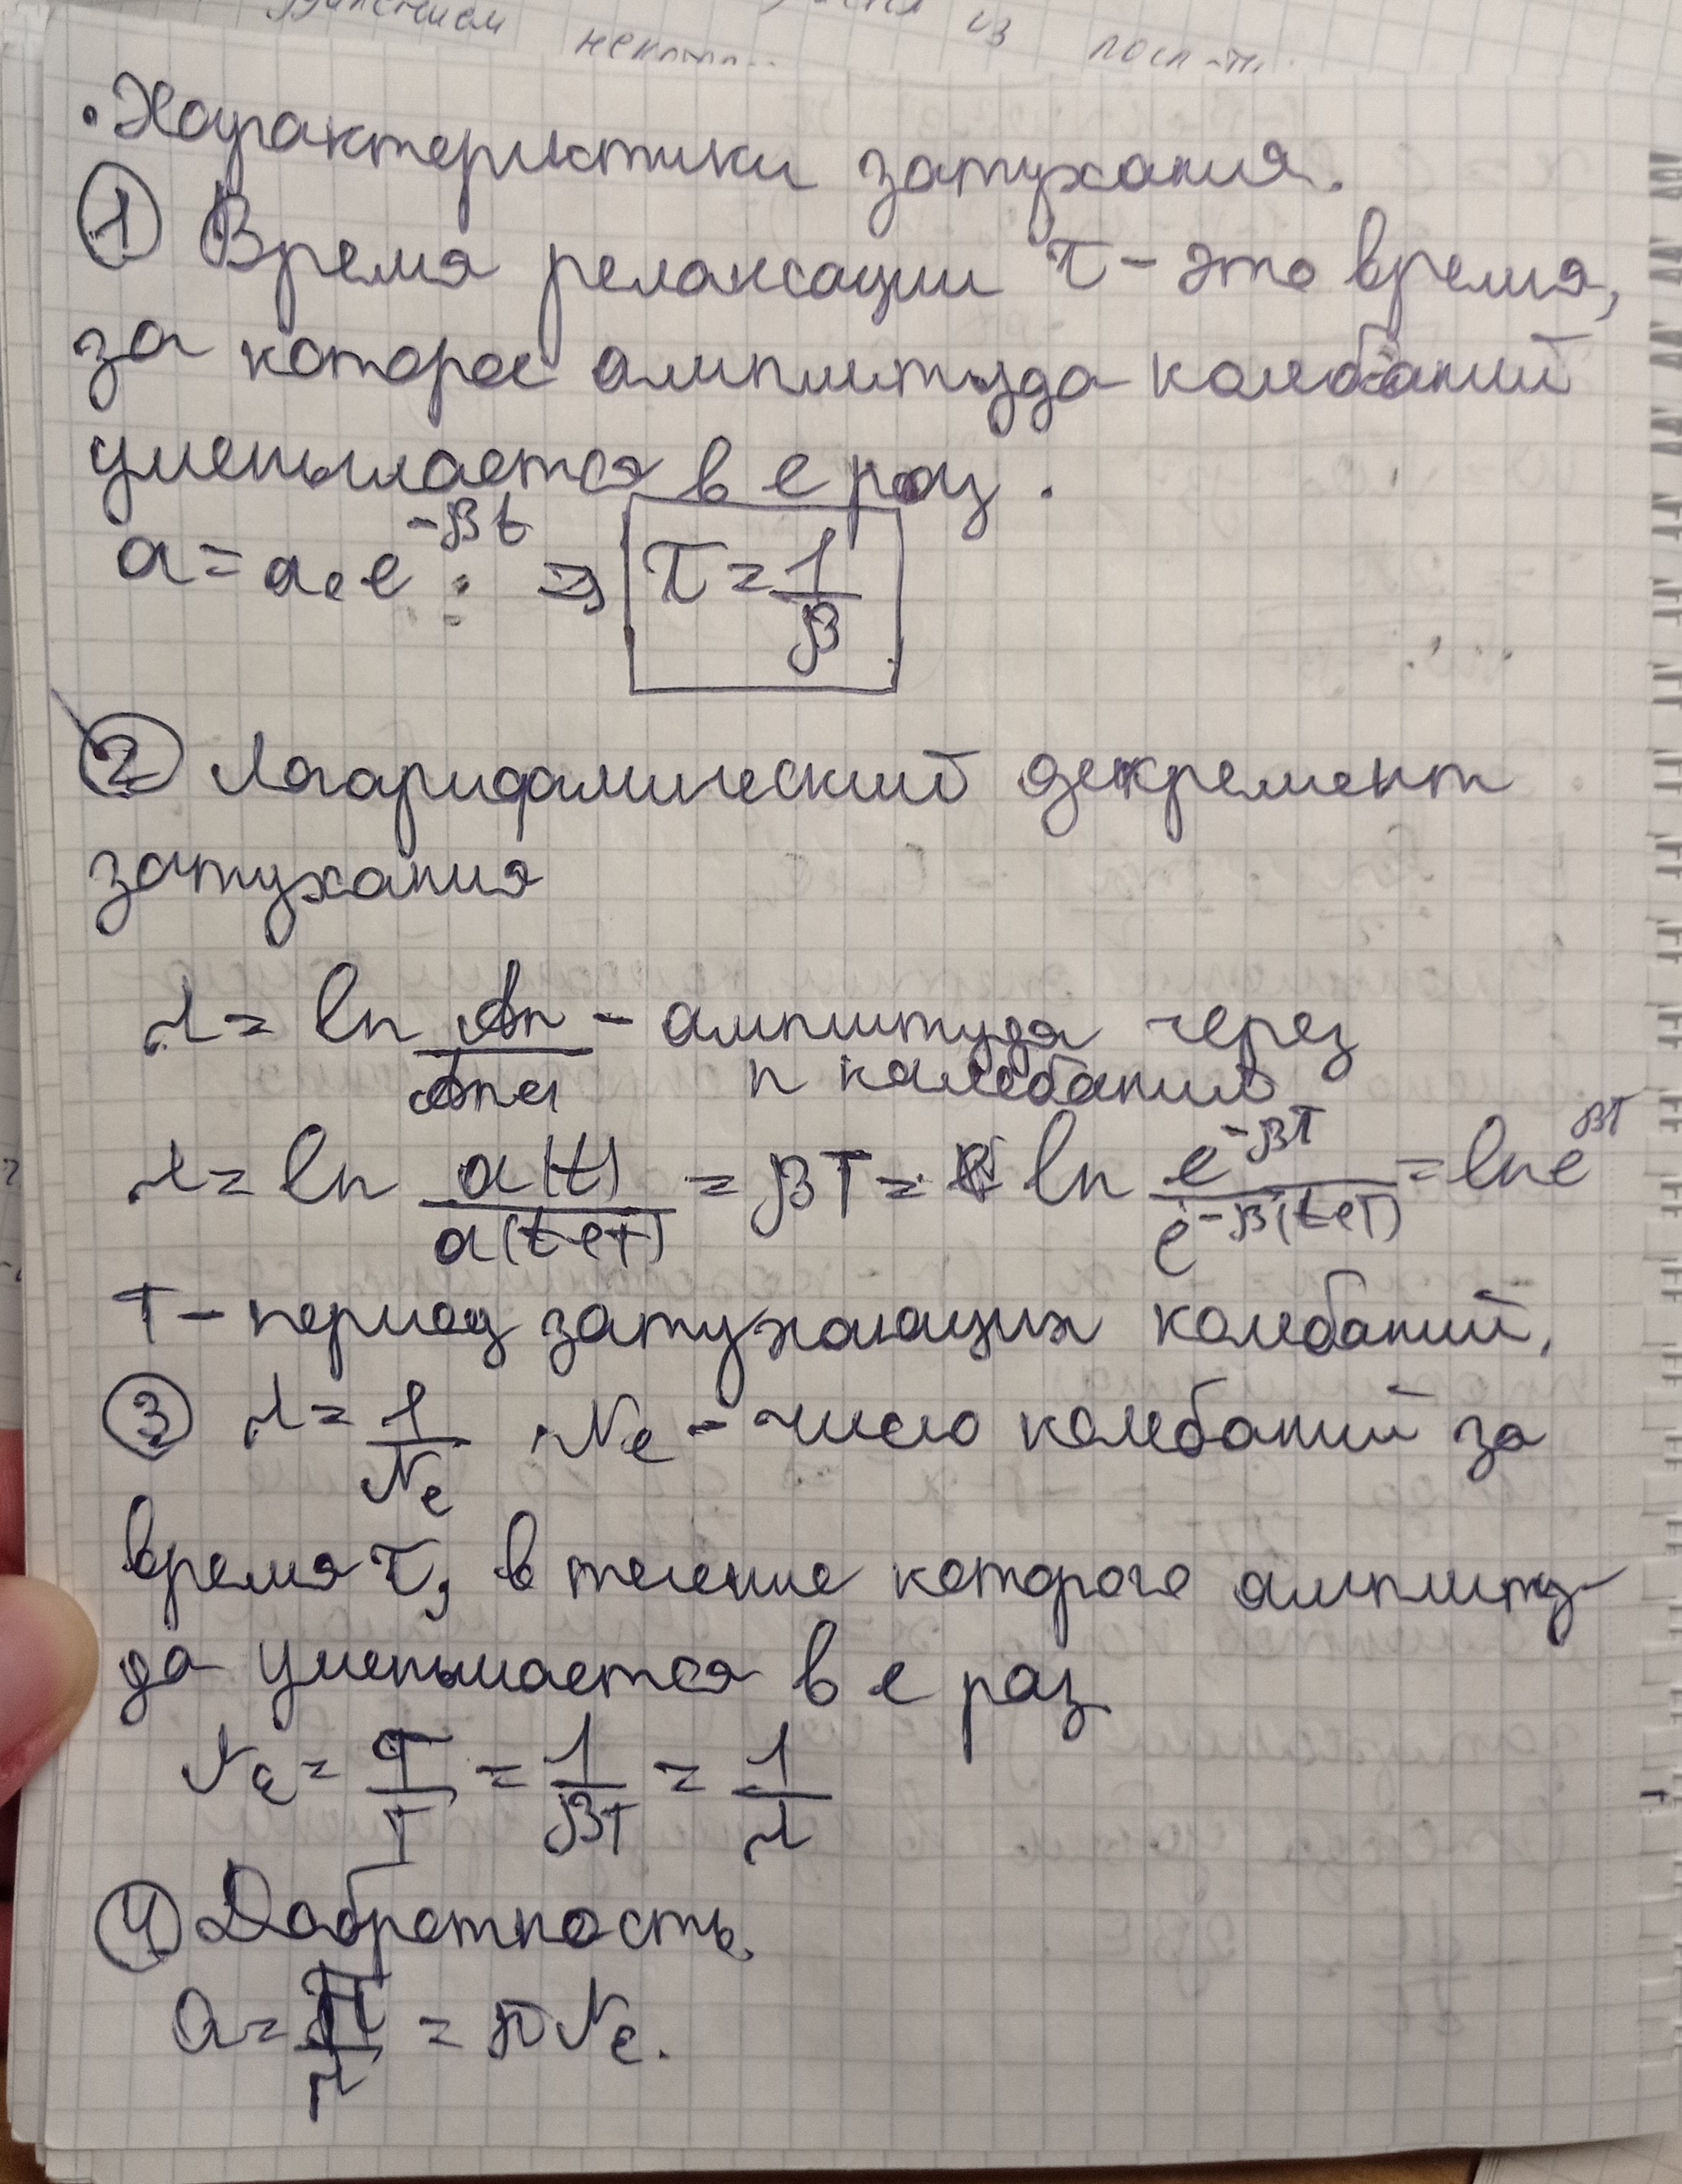 из
• Характеристики затухания.
① Время релаксации τ – это время,
за которое амплитуда колебаний
уменьшается в e раз.
a = a₀e^(-βt) ⇒ τ = 1/β
② Логарифмический декремент
затухания
λ = ln Aₙ/Aₙ₊₁ – амплитуда через
n колебаний
λ = ln a(t)/a(t+T) = βT = ln e^(-βT)/e^(-β(t+T)) = ln e^(βT)
T – период затухающих колебаний.
③ λ = 1/Nₑ Nₑ – число колебаний за
время τ, в течение которого амплиту-
да уменьшается в e раз
Nₑ = τ/T = 1/βT = 1/λ
④ Добротность.
Q = π/λ = πNₑ.